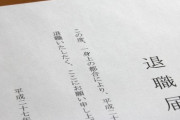 退職届
この度、一身上の都合により、平成二
退職いたしたく、ここにお願い申し上
平成二十七年